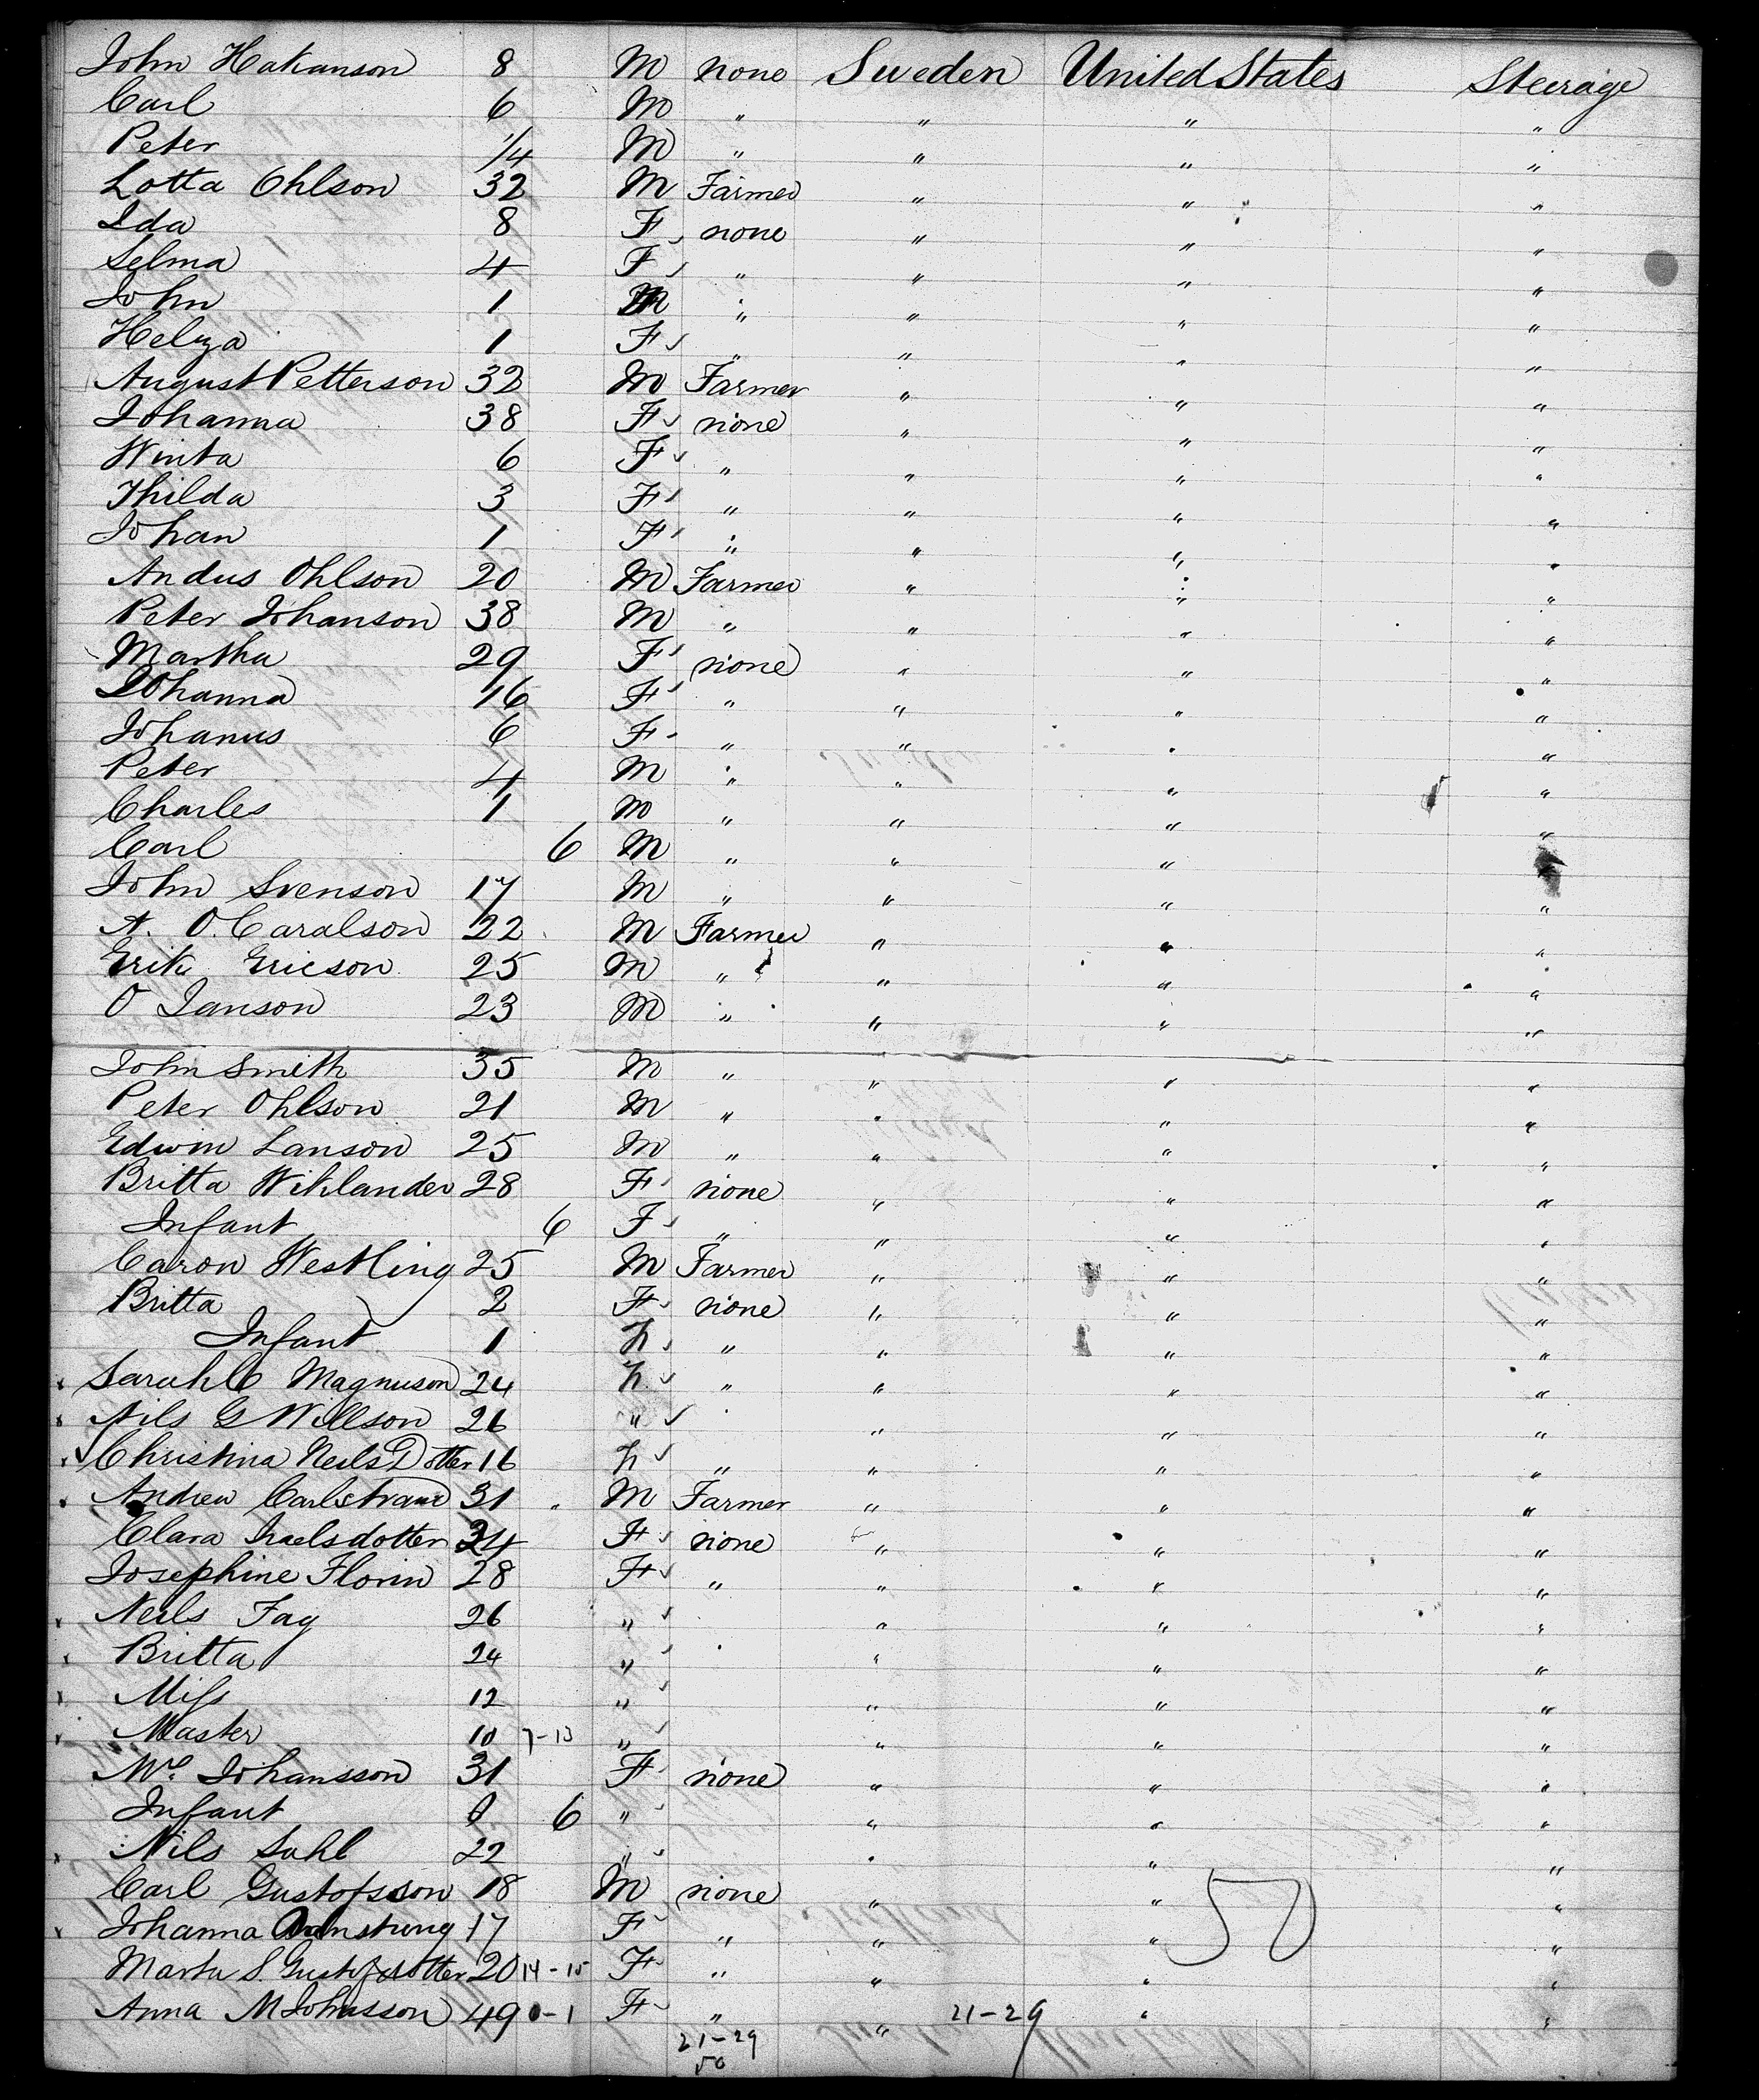 John Hakanson 8 M none Sweden United States Steerage
Carl 6 M " " " "
Peter 1/4 M " " " "
Lotta Ohlson 32 M Farmer " " "
Ida 8 F none " " "
Selma 4 F " " " "
John 1 M " " " "
Helga 1 F " " " "
August Petterson 32 M Farmer " " "
Johanna 38 F none " " "
Winta 6 F " " " "
Thilda 3 F " " " "
Johan 1 F " " " "
Andus Ohlson 20 M Farmer " " "
Peter Johanson 38 M " " " "
Martha 29 F none " " "
Johanna 16 F " " " "
Johanus 6 F " " " "
Peter 4 M " " " "
Charles 1 M " " " "
Carl 6 M " " " "
John Svenson 17 M " " " "
A. O. Caralson 22 M Farmer " " "
Erik Ericson 25 M " " " "
O Janson 23 M " " " "
John Smith 35 M " " " "
Peter Ohlson 21 M " " " "
Edwin Lanson 25 M " " " "
Britta Wihlander 28 F none " " "
Infant 6 F " " " "
Caron Westling 25 M Farmer " " "
Britta 2 F none " " "
Infant 1 F " " " "
Sarah C Magnuson 24 F " " " "
Nils G Willson 26 " " " "
Christina Neils Dotter 16 F " " " "
Andrew Carlstrand 31 M Farmer " " "
Clara Israelsdotter 24 F none " " "
Josephine Florin 28 F " " " "
Neils Fag 26 " " " "
Britta 24 " " " "
Miss 12 " " " "
Master 10 7-13 " " " "
Ms. Johansson 31 F none " " "
Infant 0 6 " " " "
Nils Sahl 22 " " " "
Carl Gustofsson 18 M none " " "
Johanna 17 F " " " "
Marta S. Gustofsdotter 20 14-15 F " " " "
Anna M Johnsson 49 0-1 F " " 21-29 " "
21-29
50
50